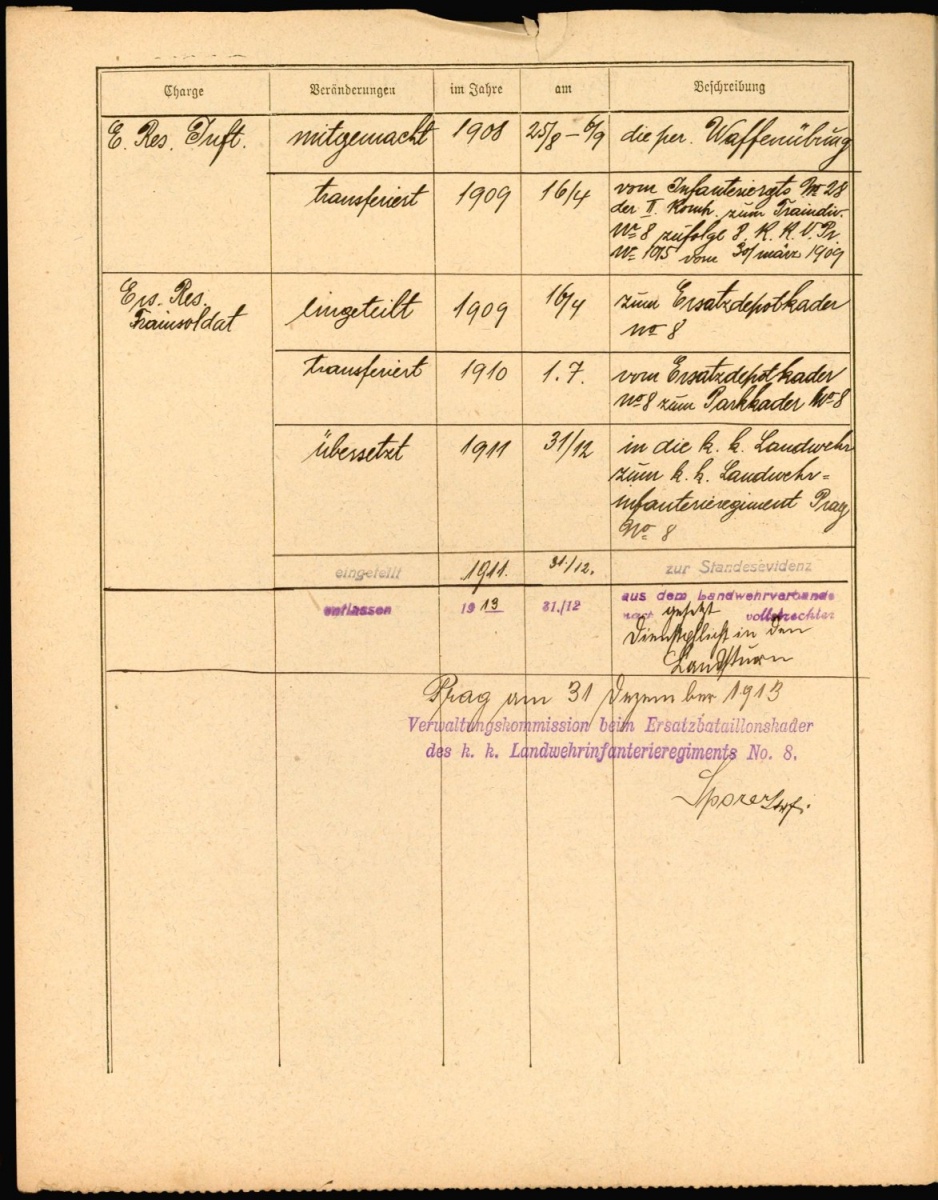 Charge Veränderungen im Jahre am Beschreibung
E. Res. Inft. mitgemacht 1908 25/8 – 6/9 die per. Waffenübung
transferiert 1909 16/4 vom Infanteriergts No 28
der II. Komp. zum Traindiv.
No 8 zufolge 8. K. K. Pr.
No vom 30/märz 1909
Ers. Res.
Trainsoldat
eingeteilt 1909 16/4 zum Ersatzdepotkader
no 8
transferiert 1910 1.7. vom Ersatzdepotkader
no 8 zum Parkkader No 8
übersetzt 1911 31/12 in die k. k. Landwehr
zum k. k. Landwehr=
infanterieregiment Prag
No 8
eingeteilt 1911. 31./12. zur Standesevidenz
entlassen 1913 31./12 aus dem Landwehrverbande
nach gesetzl vollstreckter
Dienstpflicht in den
Landsturm
Prag am 31 Dezember 1913
Verwaltungskommission beim Ersatzbataillonskader
des k. k. Landwehrinfanterieregiments No. 8.